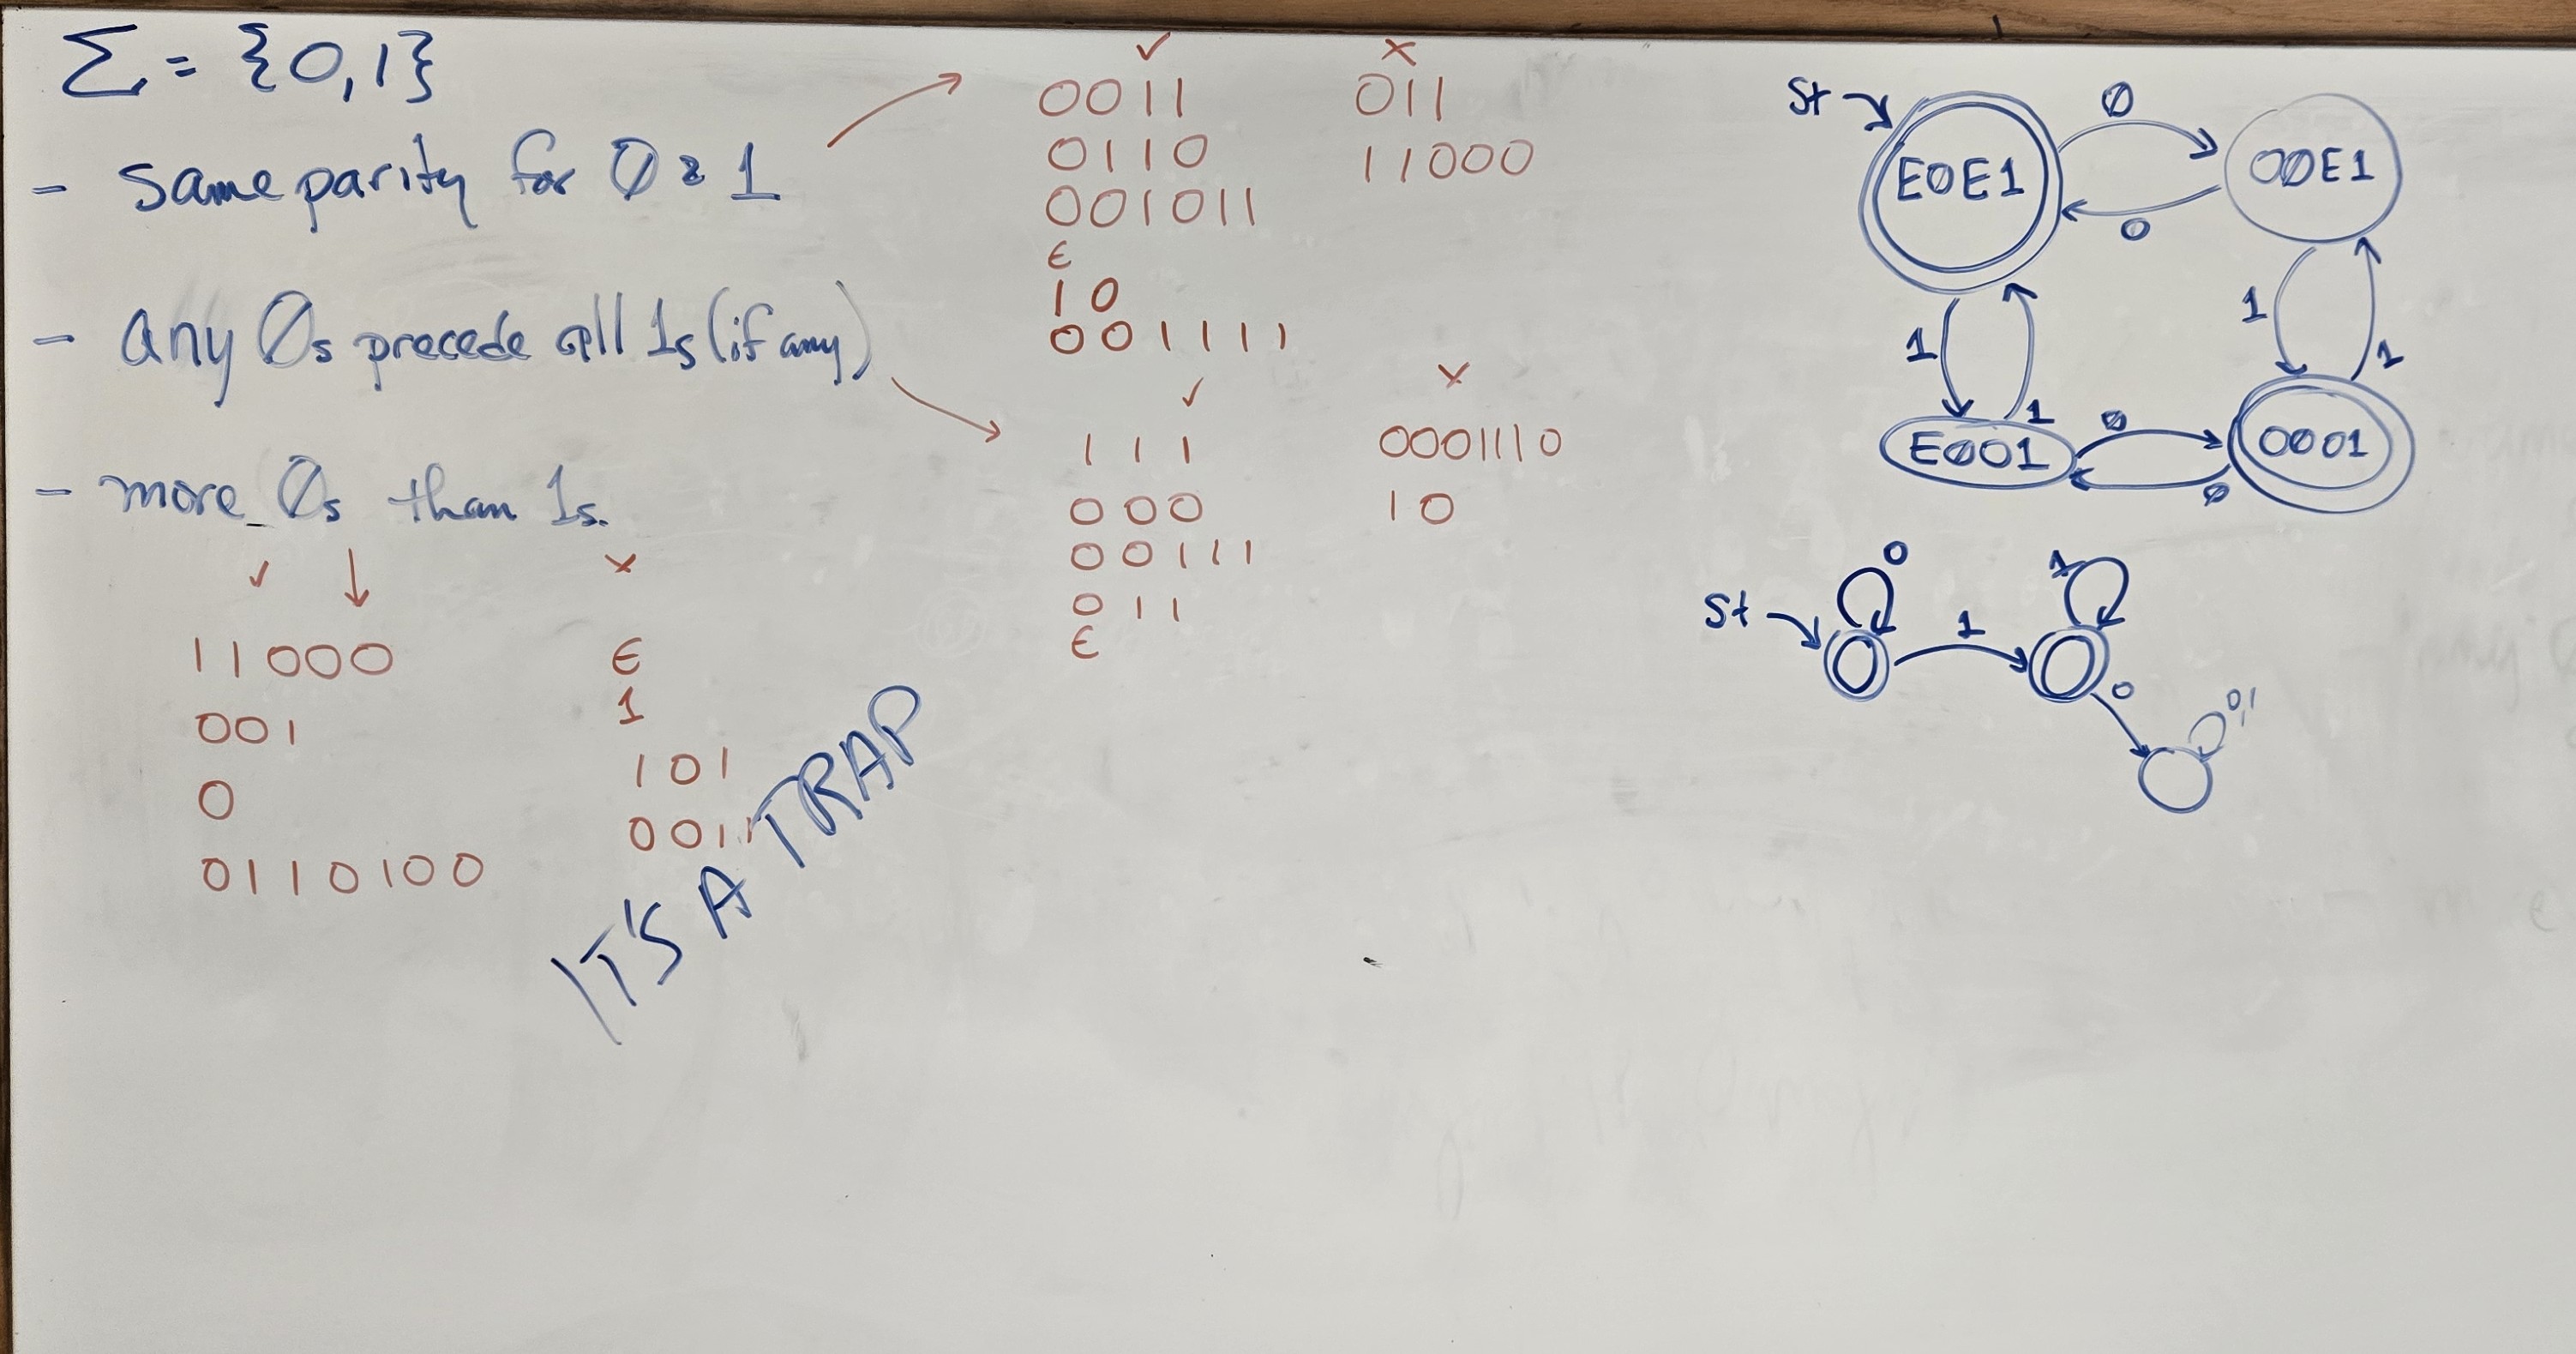 Σ = {0,1}
- same parity for Ø & 1
- any Øs precede all 1s (if any)
- more Øs than 1s.
✓ ↓ ×
11000 ϵ
001 1
0 101
0110100 0011
IT'S A TRAP
✓ ×
0011 011
0110 11000
001011
ϵ
10
001111
✓ ×
111 0001110
000 10
00111
011
ϵ
St
EØE1
Ø
OØE1
0
1
1
1
1
EØO1
Ø
OØO1
Ø
St
0
1
1
0
0,1